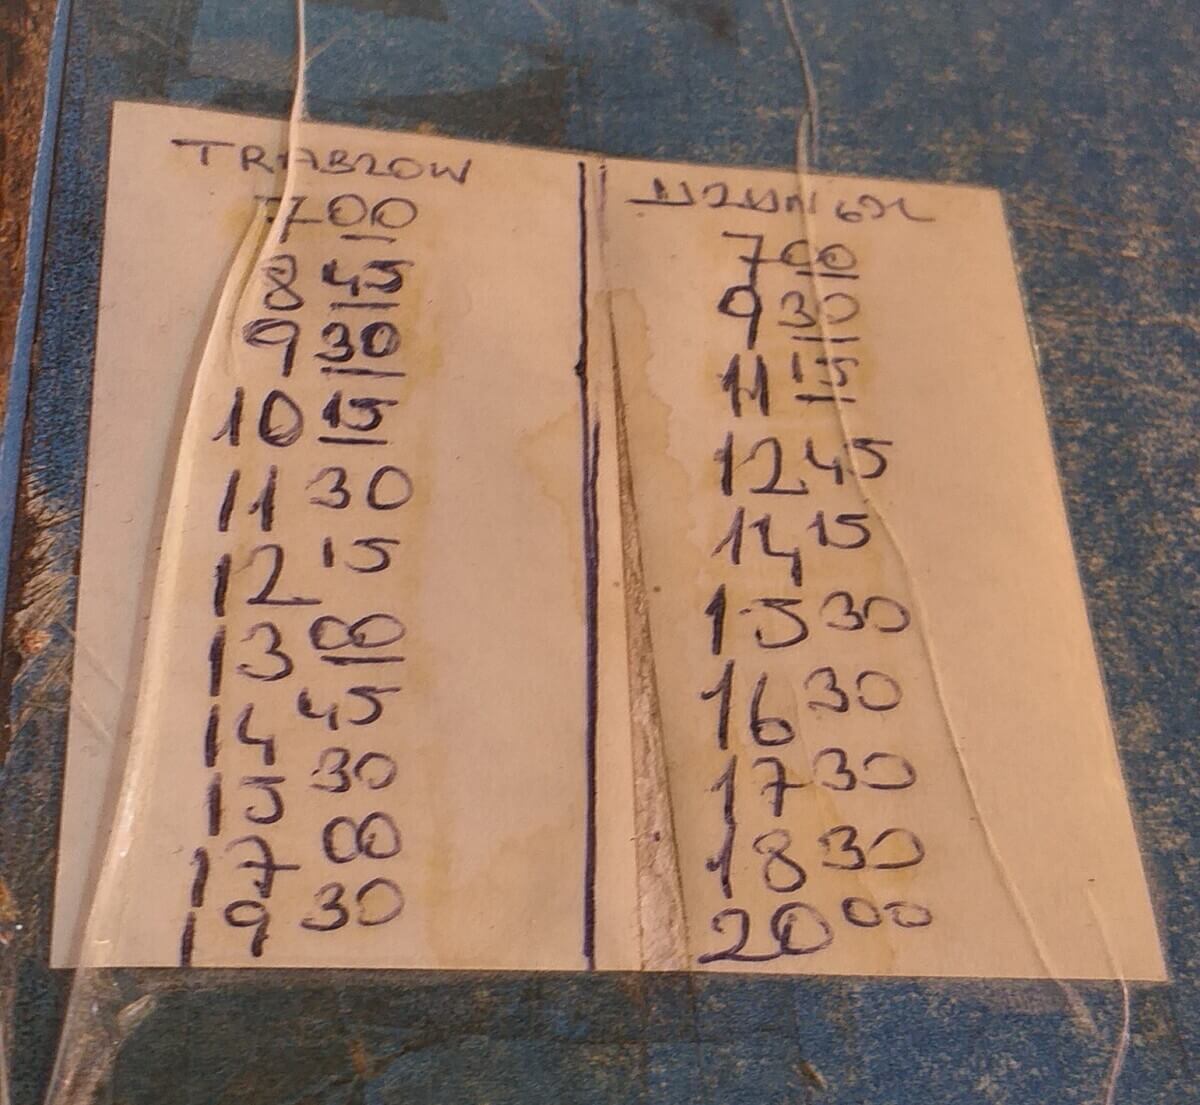 TRABZON
7 00
8 45
9 30
10 15
11 30
12 15
13 00
14 45
15 30
17 00
19 30
UZUNGÖL
7 00
9 30
11 15
12 45
14 15
15 30
16 30
17 30
18 30
20 00